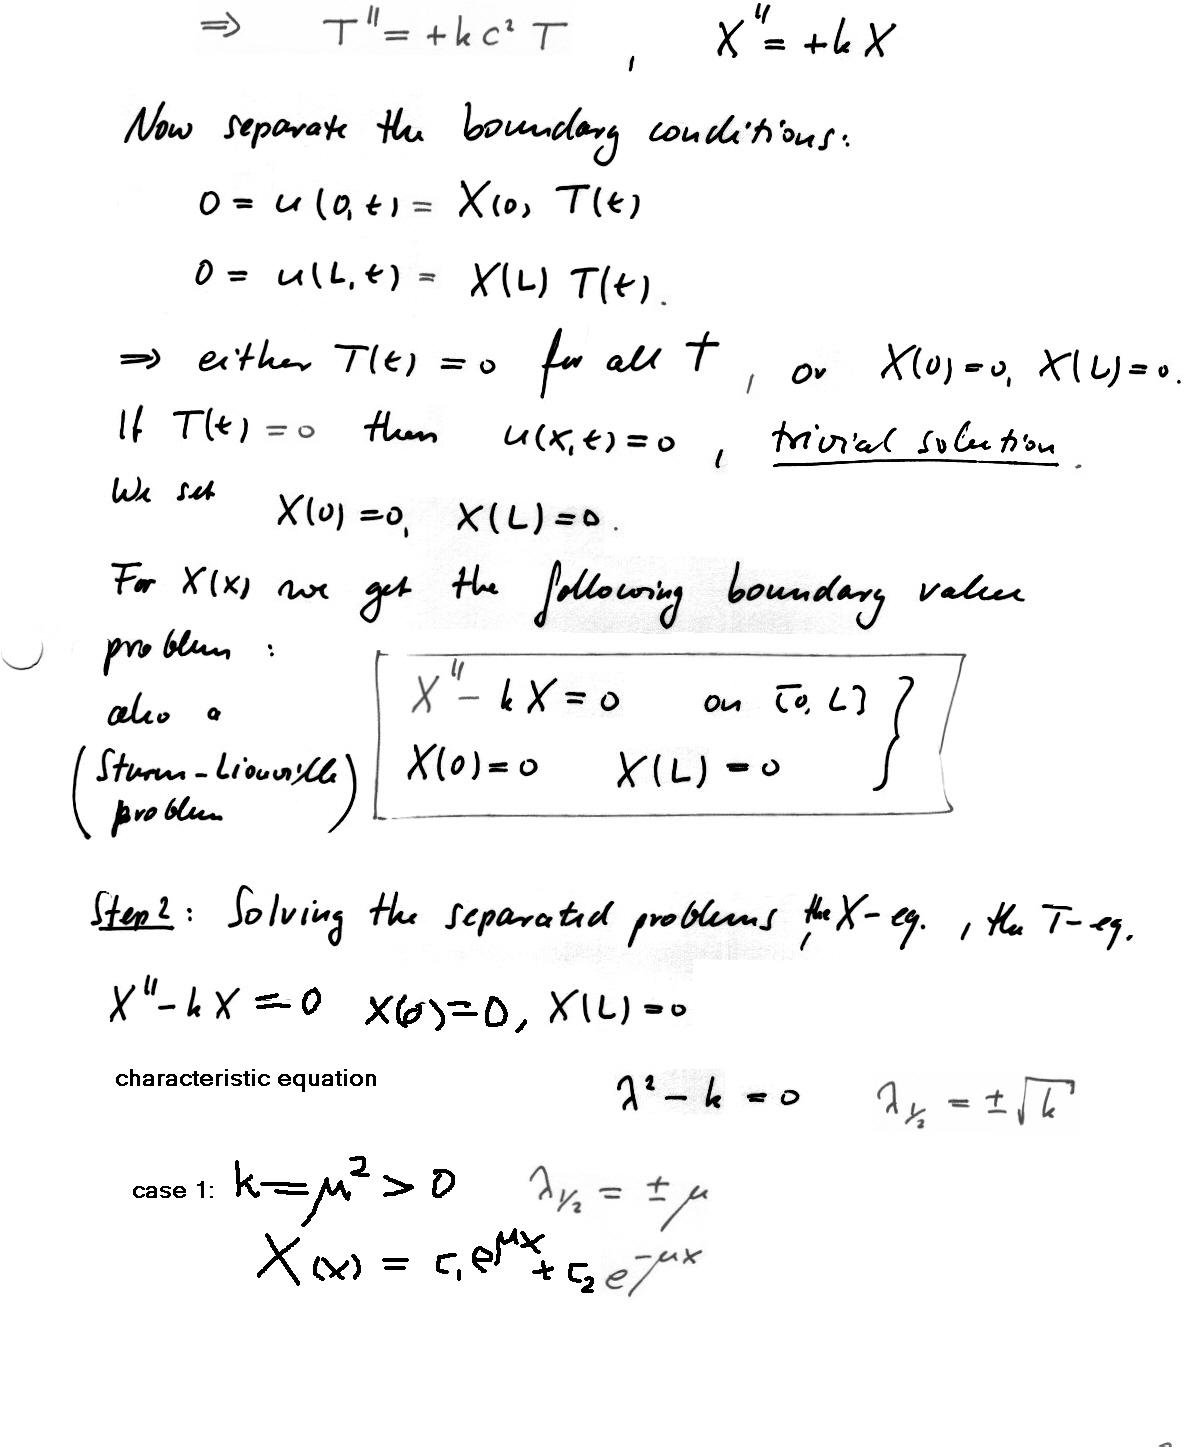 ⇒ T'' = +kc² T , X'' = +k X
Now separate the boundary conditions:
0 = u(0,t) = X(0) T(t)
0 = u(L,t) = X(L) T(t).
⇒ either T(t) = 0 for all t , or X(0)=0, X(L)=0.
If T(t) = 0 then u(x,t)=0 , trivial solution.
We set X(0)=0, X(L)=0.
For X(x) we get the following boundary value
problem :
X'' - kX = 0 on [0, L] }
also a
X(0)=0 X(L)=0
(Sturm-Liouville
problem)
Step 2: Solving the separated problems, the X-eq. , the T-eq.
X'' - kX = 0 X(0)=0, X(L)=0
characteristic equation λ² - k = 0 λ½ = ±√k
case 1: k=μ² > 0 λ½ = ± μ
X(x) = c₁e^{μx} + c₂e^{-μx}